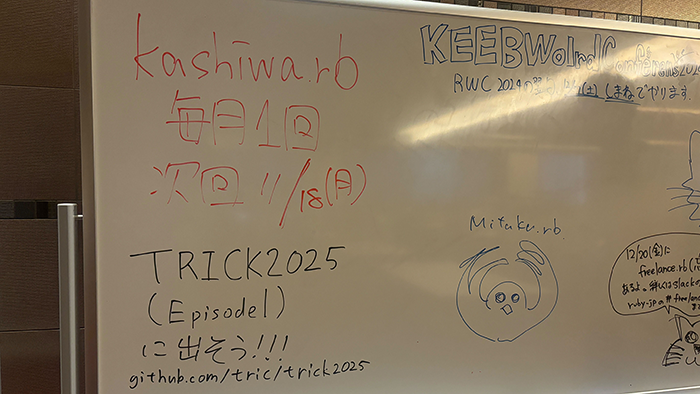 kashiwa.rb
毎月1回
次回 11/18(月)
TRICK2025
(Episode1)
に出そう!!!
github.com/tric/trick2025
KEEBWolrdConference2024
RWC 2024の (土) しまねでやります
Mitaka.rb
12/20(金)に
freelance.rb
あるよ。詳しくはslackの
ruby-jpの #freelan